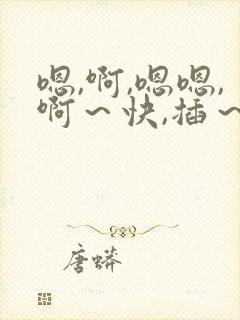 嗯,啊,嗯嗯,
啊～快,插～
唐蟒